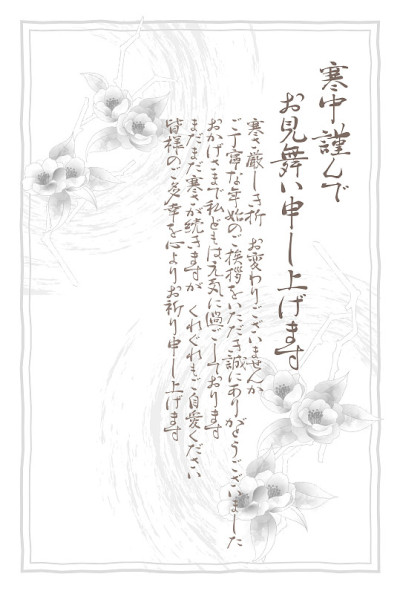 寒中謹んで
お見舞い申し上げます
寒さ厳しき折　お変わりございませんか
ご丁寧な年始のご挨拶をいただき誠にありがとうございました
おかげさまで私どもは元気に過ごしております
まだまだ寒さが続きますが　くれぐれもご自愛ください
皆様のご多幸を心よりお祈り申し上げます